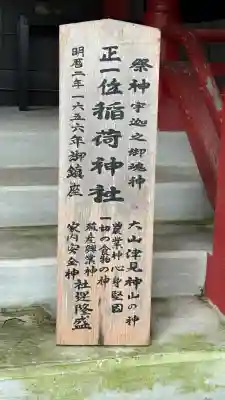 祭神 宇迦之御魂神
大山津見神 山の神
正一位稲荷神社
農業神 心身堅固
一切の食物の神
殖産興業神 社運隆盛
家内安全神
明暦二年一六五六年御鎮座